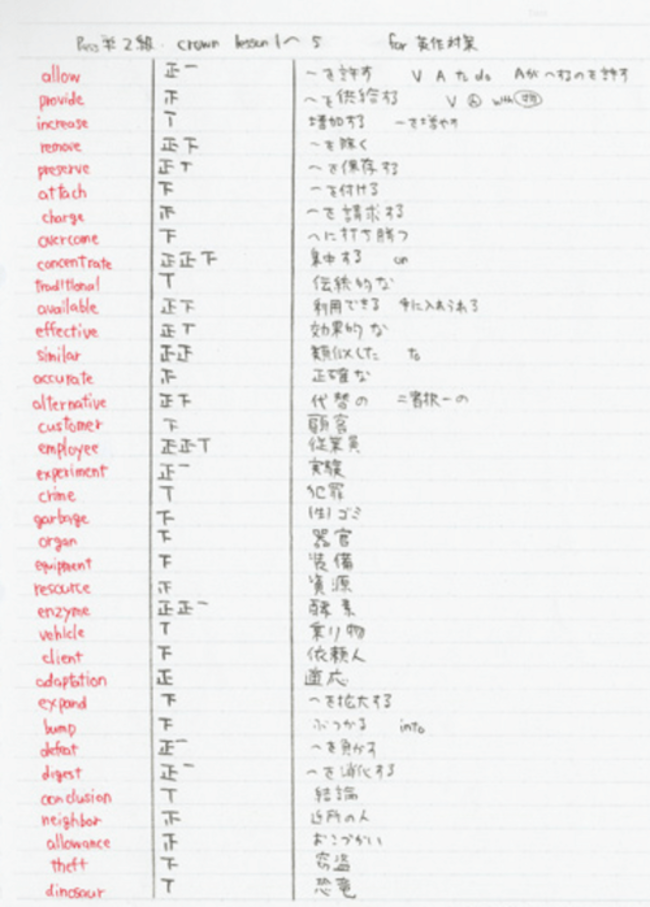 Pass 準2級. crown lesson 1〜5 for 英作対策
allow 正一 〜を許す V A to do Aが〜するのを許す
provide 正 〜を供給する V Ⓐ with 物
increase T 増加する 〜を増やす
remove 正下 〜を除く
preserve 正T 〜を保存する
attach 下 〜を付ける
charge 正 〜を請求する
overcome 下 〜に打ち勝つ
concentrate 正正下 集中する on
traditional T 伝統的な
available 正下 利用できる 手に入れられる
effective 正T 効果的な
similar 正正 類似した な
accurate 正 正確な
alternative 正下 代替の 二者択一の
customer 下 顧客
employee 正正T 従業員
experiment 正一 実験
crime T 犯罪
garbage 下 (生)ゴミ
organ 下 器官
equipment 下 装備
resource 正 資源
enzyme 正正一 酵素
vehicle T 乗り物
client 下 依頼人
adaptation 正 適応
expand 下 〜を拡大する
bump 下 ぶつかる into
defeat 正一 〜を負かす
digest 正一 〜を消化する
conclusion T 結論
neighbor 正 近所の人
allowance 正 おこづかい
theft 下 窃盗
dinosaur T 恐竜